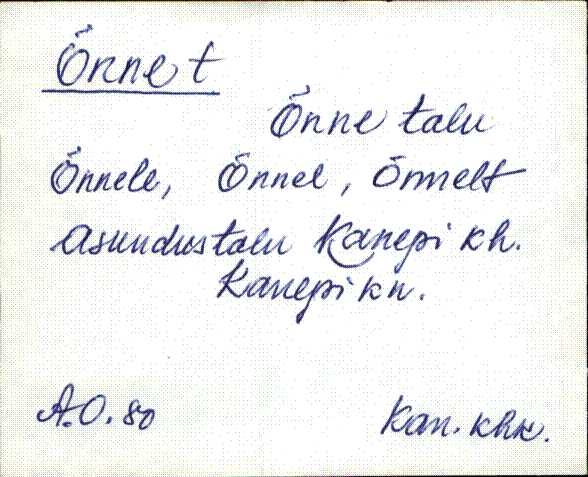 Õnne t
Õnne talu
Õnnele, Õnnel, Õnnelt
Asundustalu Kanepi kh.
Kanepi kn.
A.O. 80
Kan. khk.